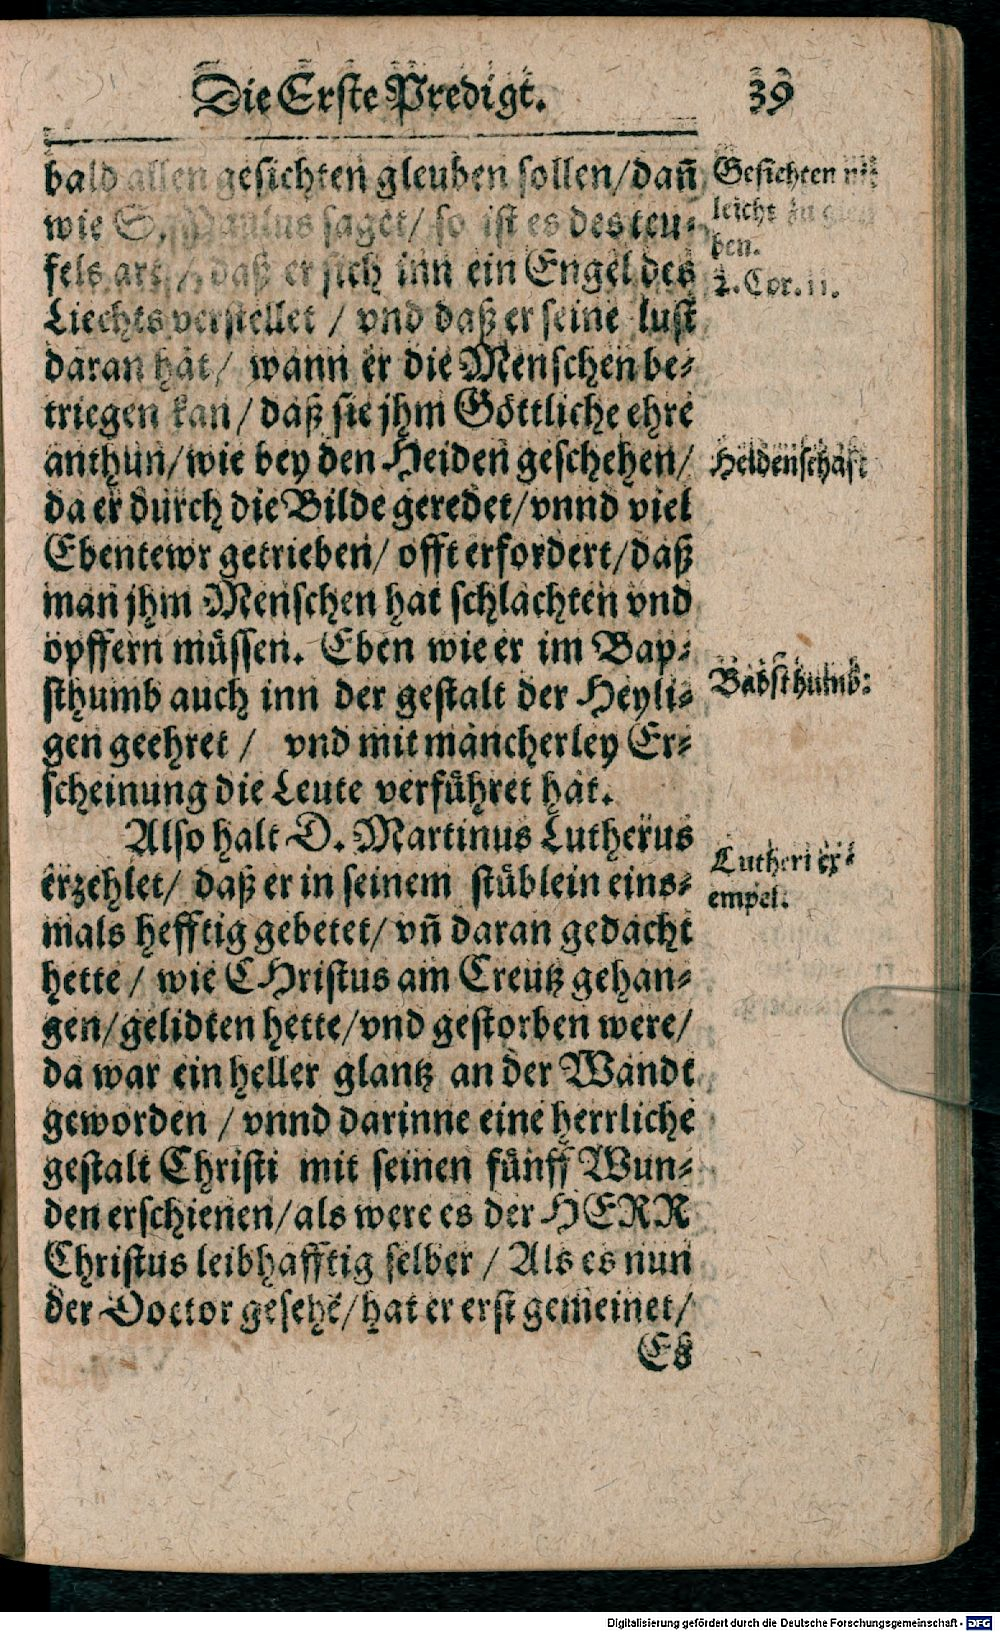 Die Erste Predigt. 39
bald allen gesichten gleuben sollen/dañ
wie S. Paulus saget/ so ist es des teu-
fels art / daß er sich inn ein Engel des
Liechts verstellet / vnd daß er seine lust
daran hat/ wann er die Menschen be-
triegen kan/ daß sie jhm Göttliche ehre
anthun/wie bey den Heiden geschehen/
da er durch die Bilde geredet/vnnd viel
Ebentewr getrieben/ offt erfordert/daß
man jhm Menschen hat schlachten vnd
opffern müssen. Eben wie er im Bap-
sthumb auch inn der gestalt der Heyli-
gen geehret / vnd mit mancherley Er-
scheinung die Leute verführet hat.
Also halt D. Martinus Lutherus
erzehlet/ daß er in seinem stüblein eins-
mals hefftig gebetet/ vñ daran gedacht
hette / wie CHristus am Creutz gehan-
gen/gelidten hette/vnd gestorben were/
da war ein heller glantz an der Wandt
geworden / vnnd darinne eine herrliche
gestalt Christi mit seinen fünff Wun-
den erschienen/als were es der HERR
Christus leibhafftig selber / Als es nun
der Doctor gesehē/hat er erst gemeinet/
Es
Gesichten nit
leicht zu gleu
ben.
2. Cor. 11.
Heidenschaft
Babsthumb:
Lutheri ex-
empel.
Digitalisierung gefördert durch die Deutsche Forschungsgemeinschaft - DFG